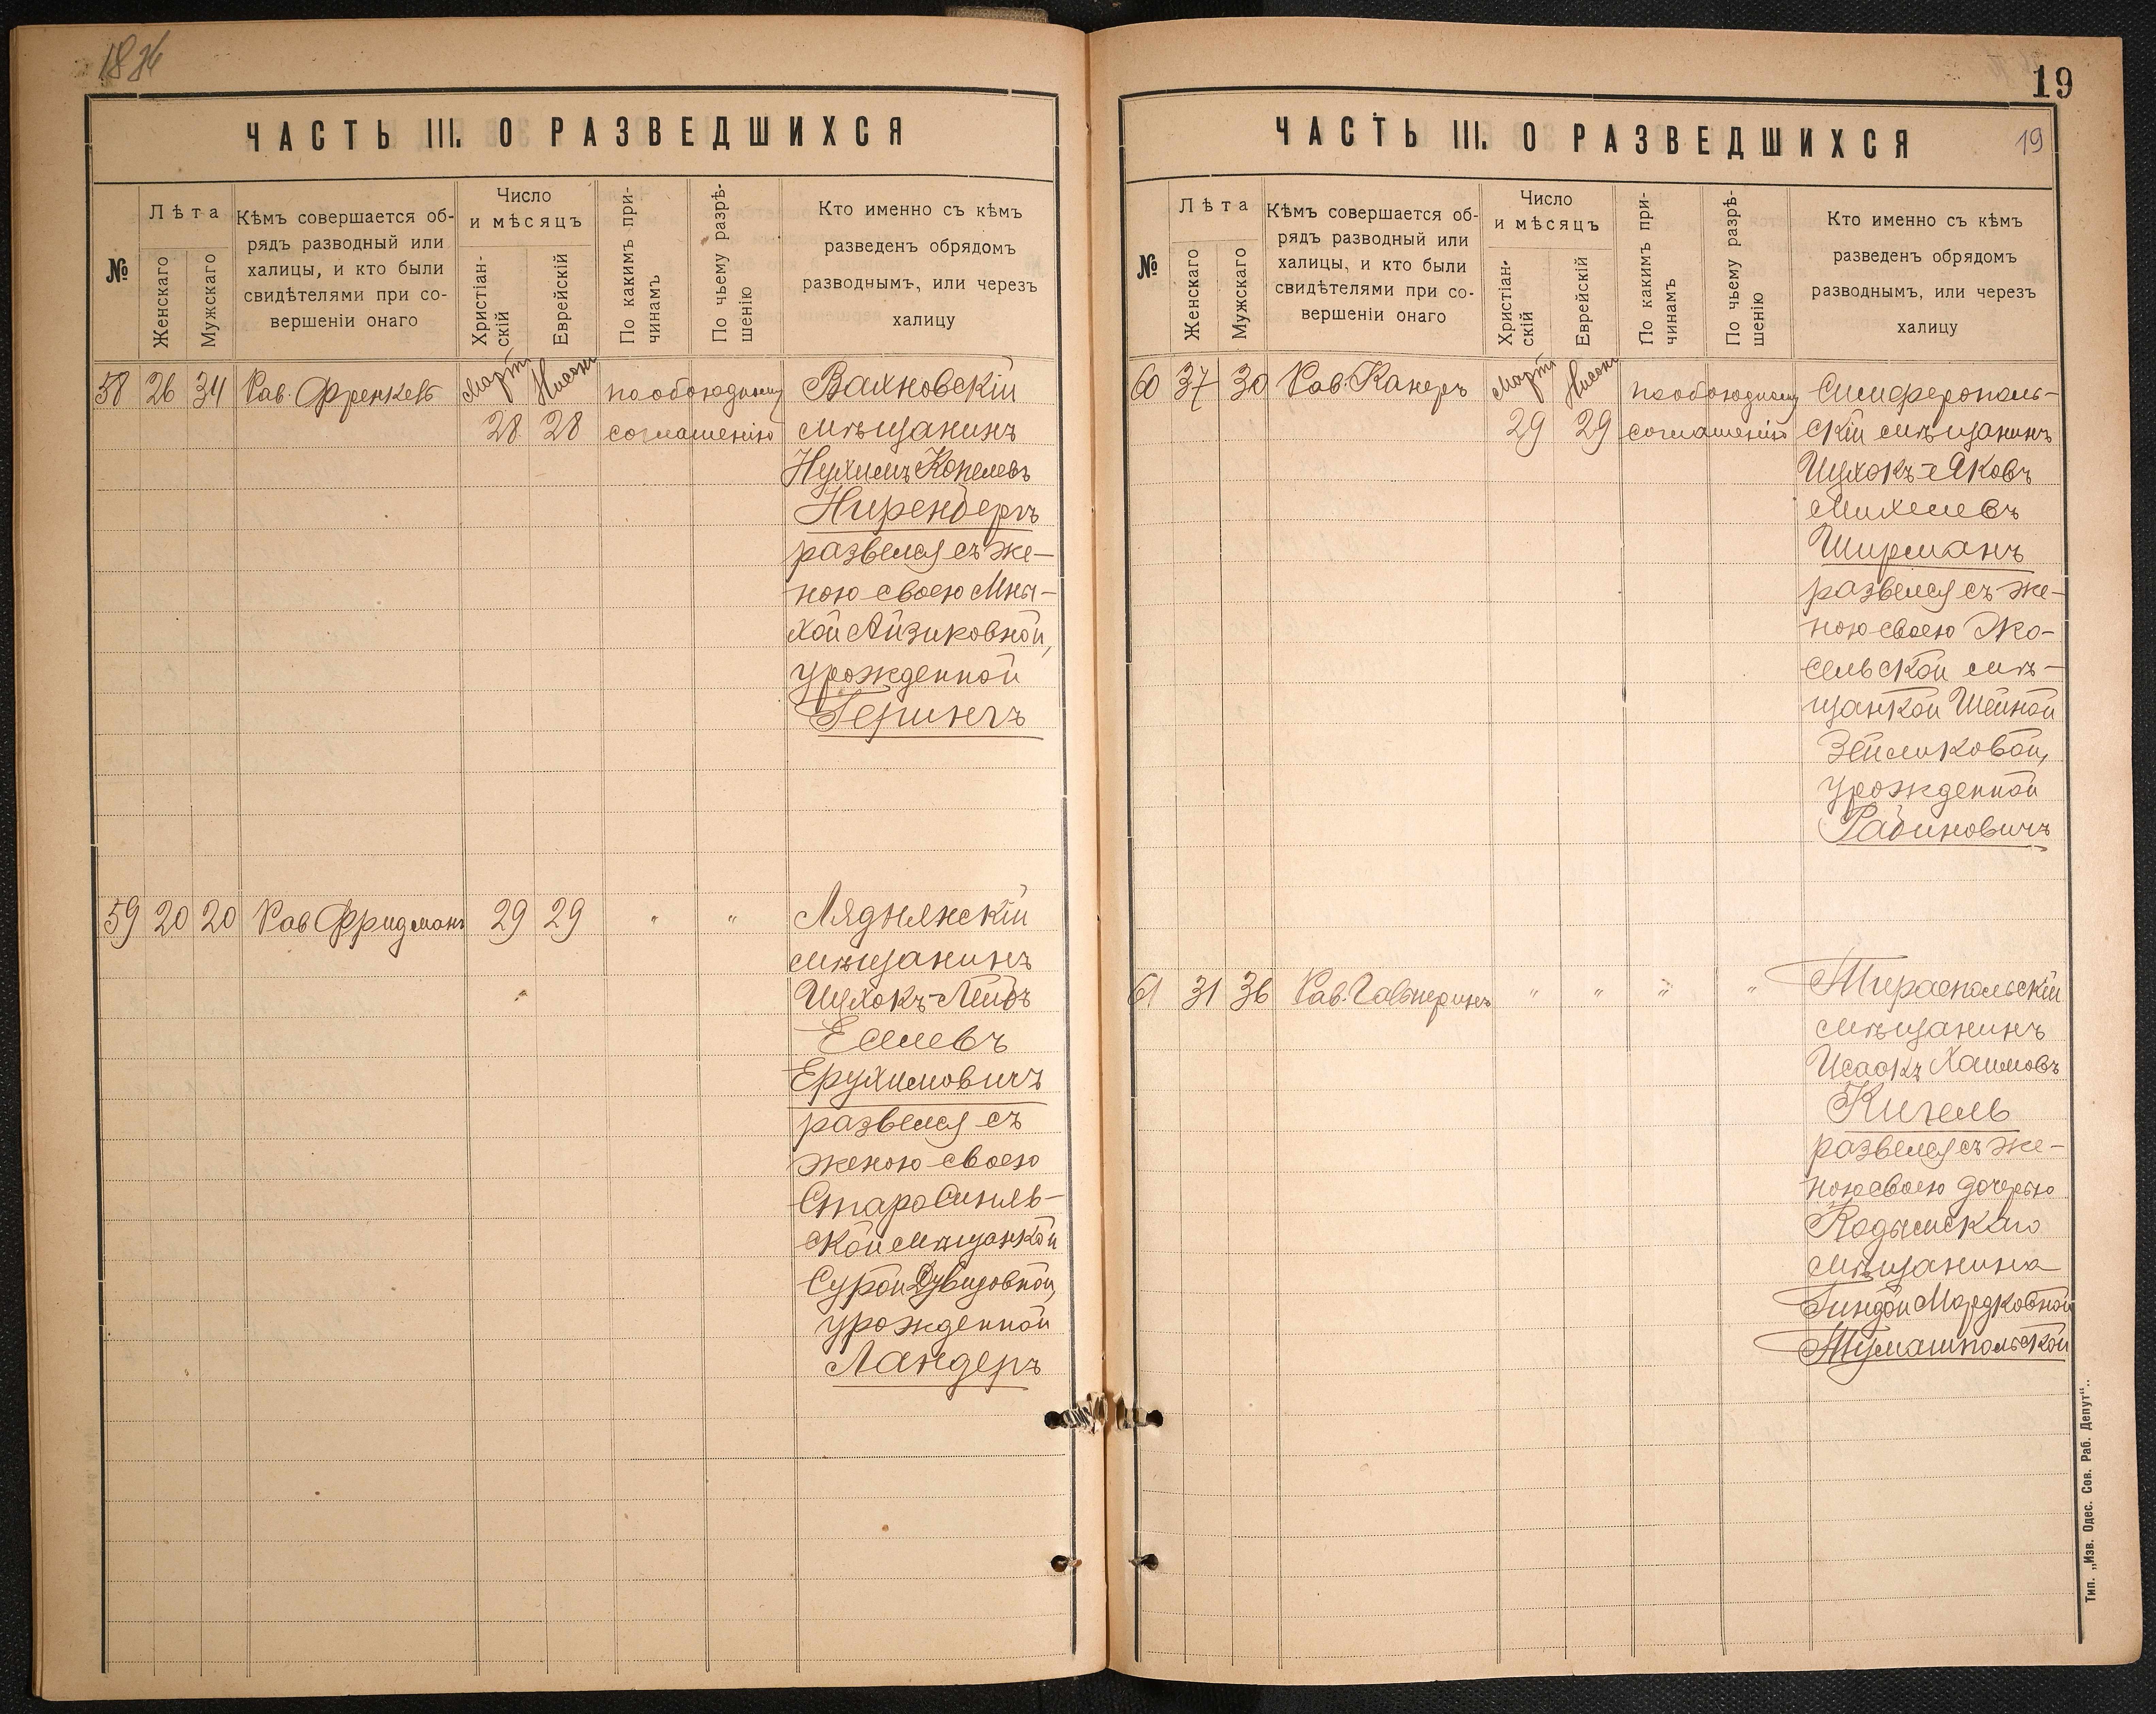 19
ЧАСТЬ III. О РАЗВЕДШИХСЯ
№
Лѣта
Женскаго
Мужскаго
Кѣмъ совершается об-
рядъ разводный или
халицы, и кто были
свидѣтелями при со-
вершеніи онаго
Число
и мѣсяцъ
Христіан-
скій
Еврейскій
По какимъ при-
чинамъ
По чьему разрѣ-
шенію
Кто именно съ кѣмъ
разведенъ обрядомъ
разводнымъ, или черезъ
халицу
58 26 34 Рав. Френкель Мартъ 28 Нисонъ 28 по обоюдному
соглашенію
Вахновскій
мѣщанинъ
Нухимъ Копелевъ
Ниренбергъ
развелся съ же-
ною своею Мны-
хой Айзиковной,
урожденной
Герингъ
59 20 20 Рав Фридманъ 29 29 " "
Лядыжскій
мѣщанинъ
Ицхокъ-Лейбъ
Еселевъ
Ерухимовичъ
развелся съ
женою своею
Старосиняв-
ской мѣщанкой
Сурой Дувидовной,
урожденной
Ландеръ
ЧАСТЬ III. О РАЗВЕДШИХСЯ
19
№
Лѣта
Женскаго
Мужскаго
Кѣмъ совершается об-
рядъ разводный или
халицы, и кто были
свидѣтелями при со-
вершеніи онаго
Число
и мѣсяцъ
Христіан-
скій
Еврейскій
По какимъ при-
чинамъ
По чьему разрѣ-
шенію
Кто именно съ кѣмъ
разведенъ обрядомъ
разводнымъ, или черезъ
халицу
60 37 30 Рав. Канеръ Мартъ 29 Нисонъ 29 по обоюдному
соглашенію
Симферополь-
скій мѣщанинъ
Ицхокъ-Яковъ
Михелевъ
Ширманъ
развелся съ же-
ною своею
сельской мѣ-
щанкой Шейной
Зейликовой,
урожденной
Рабиновичъ
61 31 36 Рав. Гальперинъ " " " "
Тираспольскій
мѣщанинъ
Исаакъ Хаимовъ
Кигель
развелся съ же-
ною своею дочерью
Кодымскаго
мѣщанина
Гиндой Мордковной
Тумашпольской
Тип. „Изв. Одес. Сов. Раб. Депут“..